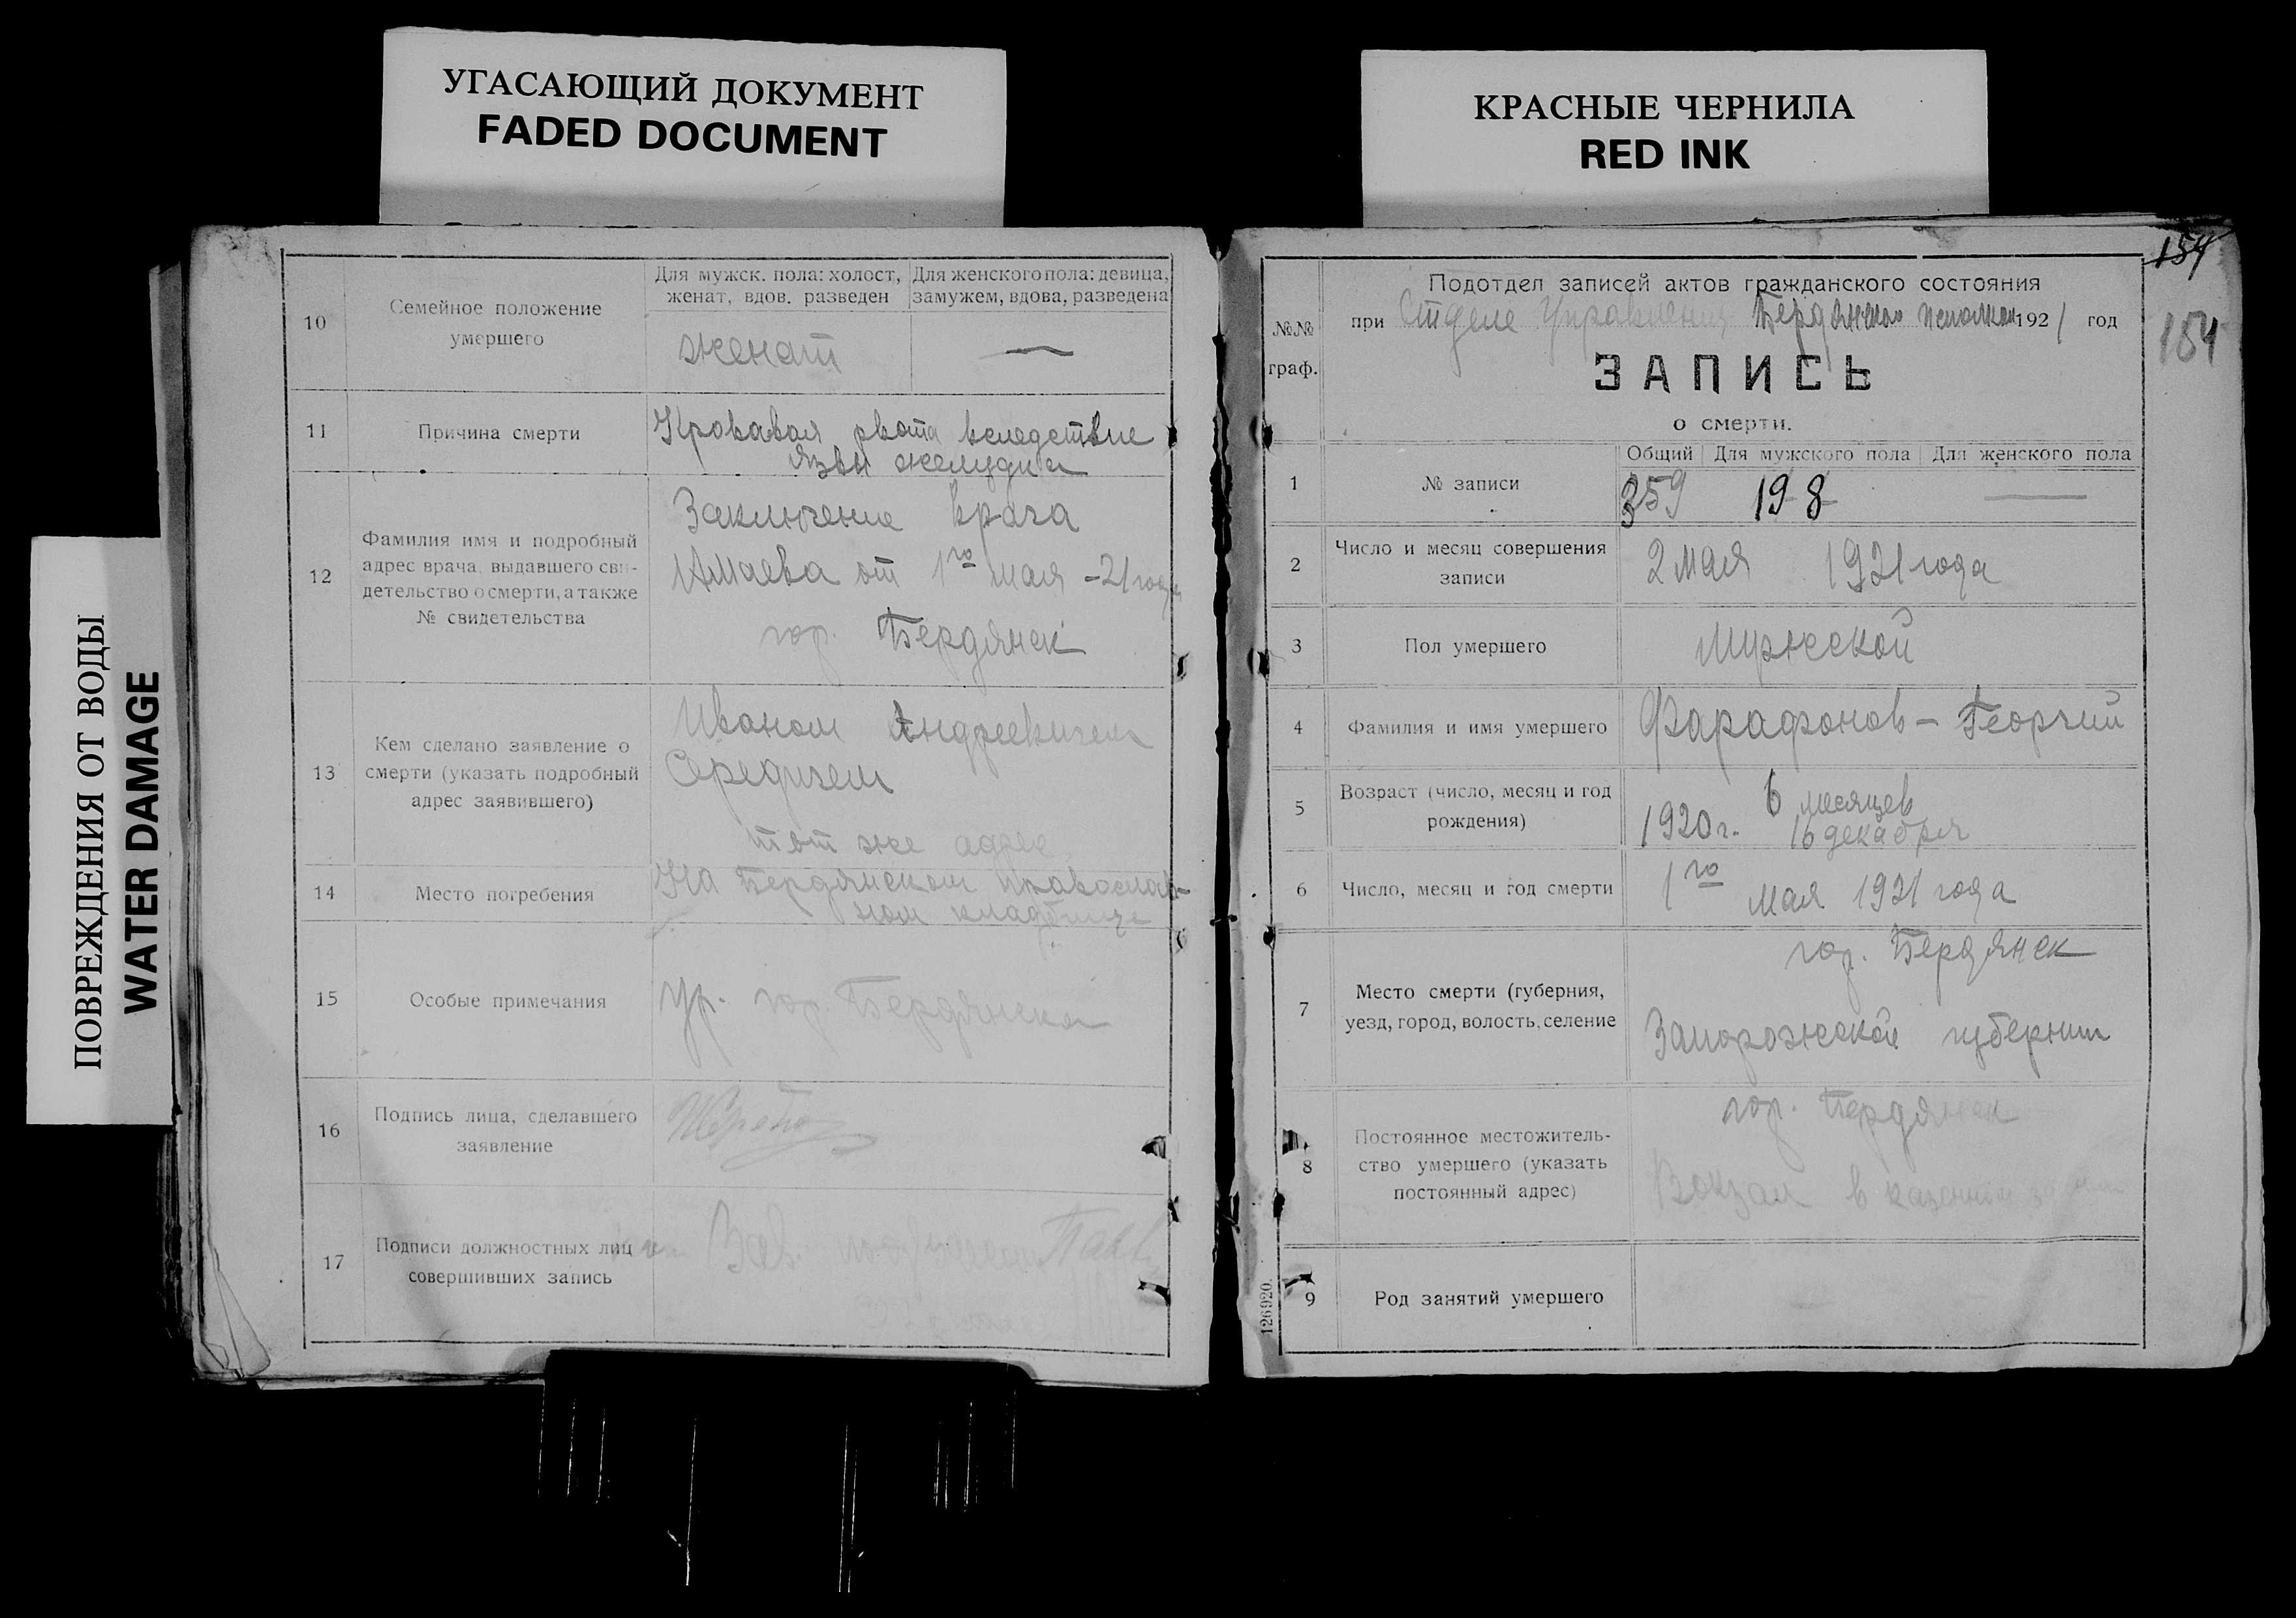 УГАСАЮЩИЙ ДОКУМЕНТ
FADED DOCUMENT
КРАСНЫЕ ЧЕРНИЛА
RED INK
ПОВРЕЖДЕНИЯ ОТ ВОДЫ
WATER DAMAGE
10
Семейное положение
умершего
Для мужск. пола: холост,
женат, вдов. разведен
Для женского пола: девица,
замужем, вдова, разведена
женат
—
11
Причина смерти
Кровавая рвота вследствие
язвы желудка
12
Фамилия имя и подробный
адрес врача, выдавшего сви-
детельство о смерти, а также
№ свидетельства
Заключение врача
от 1го мая -21 года
гор. Бердянск
13
Кем сделано заявление о
смерти (указать подробный
адрес заявившего)
Иваном Андреевичем
тот же адрес
14
Место погребения
На Бердянском православ-
ном кладбище
15
Особые примечания
ур. гор. Бердянска
16
Подпись лица, сделавшего
заявление
17
Подписи должностных лиц
совершивших запись
Зав.
154
154
№№
граф.
Подотдел записей актов гражданского состояния
при Отделе Управления Бердянского 1921 год
ЗАПИСЬ
о смерти.
1
№ записи
Общий
Для мужского пола
Для женского пола
359
198
—
2
Число и месяц совершения
записи
2 мая 1921 года
3
Пол умершего
Мужской
4
Фамилия и имя умершего
Фарафонов - Георгий
5
Возраст (число, месяц и год
рождения)
6 месяцев
1920 г. 16 декабря
6
Число, месяц и год смерти
1го мая 1921 года
7
Место смерти (губерния,
уезд, город, волость, селение
гор. Бердянск
Запорожской губернии
8
Постоянное местожитель-
ство умершего (указать
постоянный адрес)
гор. Бердянск
Вокзал в
9
Род занятий умершего
126920.